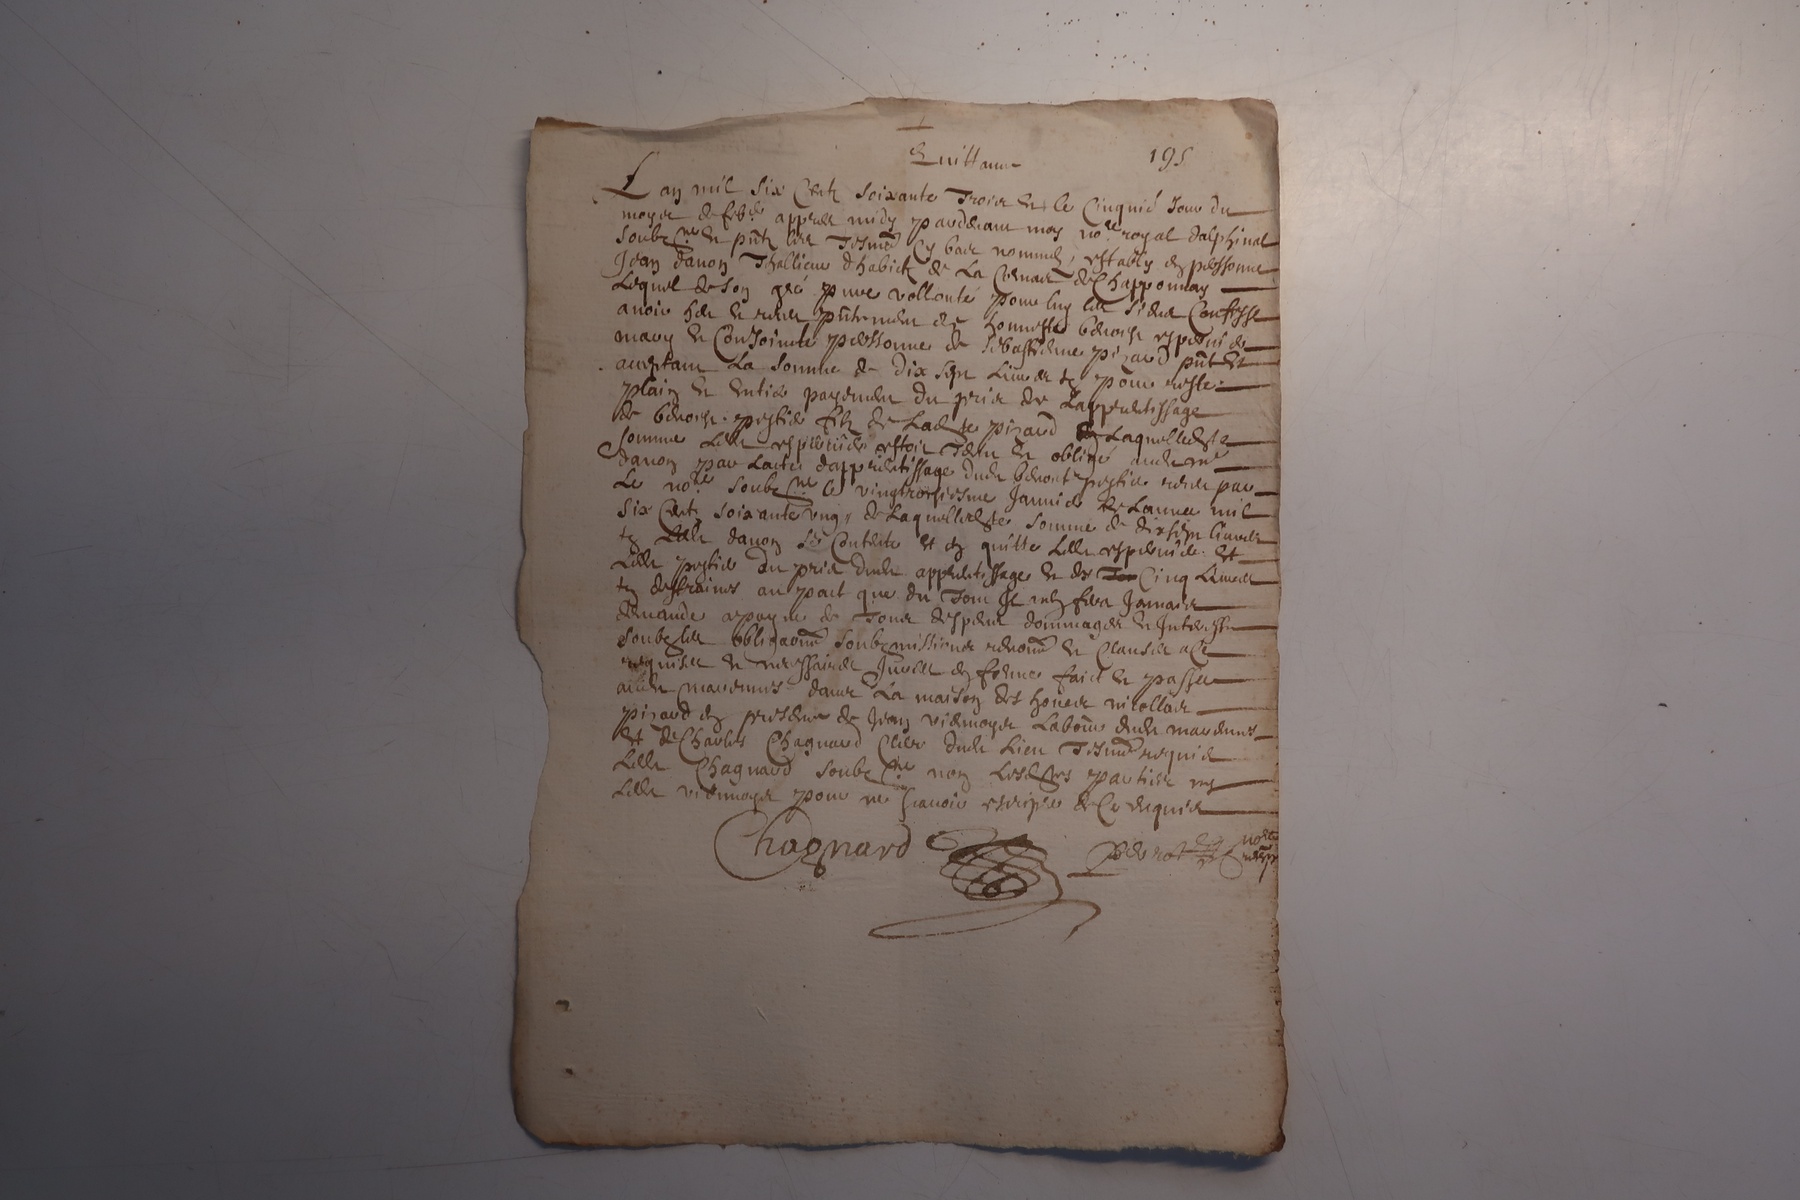 Quittance
195
Lan mil six centz soixante trois & le cinquie Jour du
moys de febr appres midy pardevant moy nore royal dalphinal
soubzne & pntz les tesms cy bas nommes, estably en personne
Jean Danon Thallieur dhabictz de La Comune de Chapponnay
Lequel de son gré pure vollonté pour luy les siens Confesse
avoir heu & receu pntement de honneste benoist
mary & Conjoincte personne de sebastienne pizard pnt &
acceptant La somme de dix sept Livres tz pour reste
plain & entier payement du pris de Lapprentissage
de benoist filz de Ladte pizard Laquelledte
somme Ledt estoit tenu & obligé audt me
Danon par Lacte dapprentissage dudt benoist receu par
Le nore soubzne le vingtroisiesme Janvier de Lannee mil
six centz soixante ung, de Laquelledte somme de dix sept livres
tz Ledt danon se contente et en quitte Ledt et
Ledt du pris dudt apprentissage & des Cinq Livres
tz destraines au pact que du tout Il nen fera Jamais
demande a payne de tous despens dommages & Interestz
soubz les obligaons soubzmissions renons & Clauses a ce
requises & necessaires Juree en forme faict & passé
audt marennes dans La maison des hoirs nicollas
pizard en presence de Jean vidmoyer Labour dudt marennes
et de Charles Chagnard Clerc dudt Lieu tesms requis
Ledt Chagnard soubzne non Lesdtes parties ny
Ledt vidmoyer pour ne scavoir escripre de ce requis
Chagnard